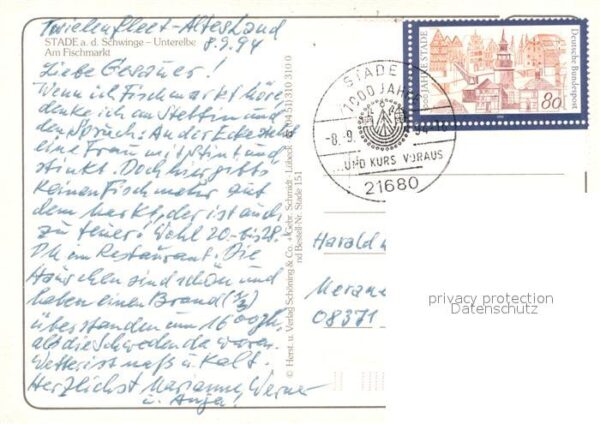 Twielenfleet-Altes Land
8.9.94
STADE a. d. Schwinge – Unterelbe
Am Fischmarkt
Liebe
Wenn ich Fischmarkt höre,
denke ich an Stettin und
den Spruch: An der Ecke steht
eine Frau mit Stint und
stinkt. Doch hier gibts
keinen Fisch mehr auf
dem Markt, der ist auch
zu teuer! Wohl 20.- bis 28.-
DM im Restaurant. Die
Häuschen sind schön und
haben einen Brand (⅔)
überstanden um 1600zh,
als die Schweden da waren.
Wetter ist naß u kalt.
Herzlichst Marianne, Werner
u. Anja!
© Herst. u. Verlag Schöning & Co. + Gebr. Schmidt · Lübeck · 310 310 0
nd Bestell-Nr. Stade 151
1000 JAHRE STADE
Deutsche Bundespost
80
STADE
1000 JAHRE
-8. 9. 94-18
...UND KURS VORAUS
21680
Harald
Meran
08371
privacy protection
Datenschutz